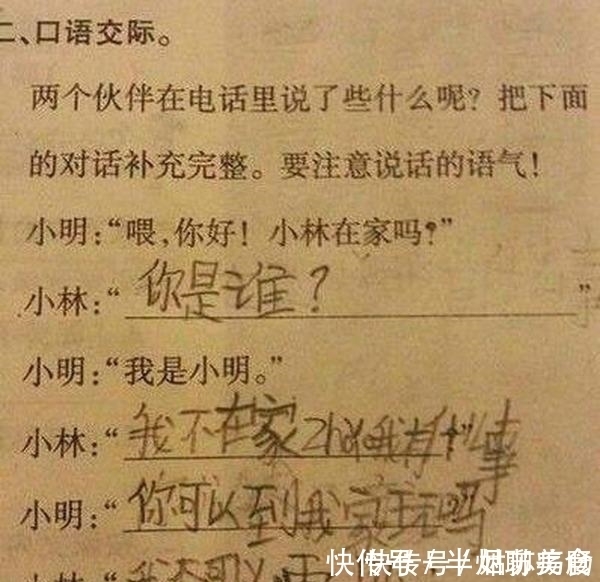 二、口语交际。
两个伙伴在电话里说了些什么呢？把下面
的对话补充完整。要注意说话的语气！
小明：“喂，你好！小林在家吗？”
小林：“你是谁？”
小明：“我是小明。”
小林：“我不在家zhǎo我有什么事”
小明：“你可以到我家玩吗”
快传号/